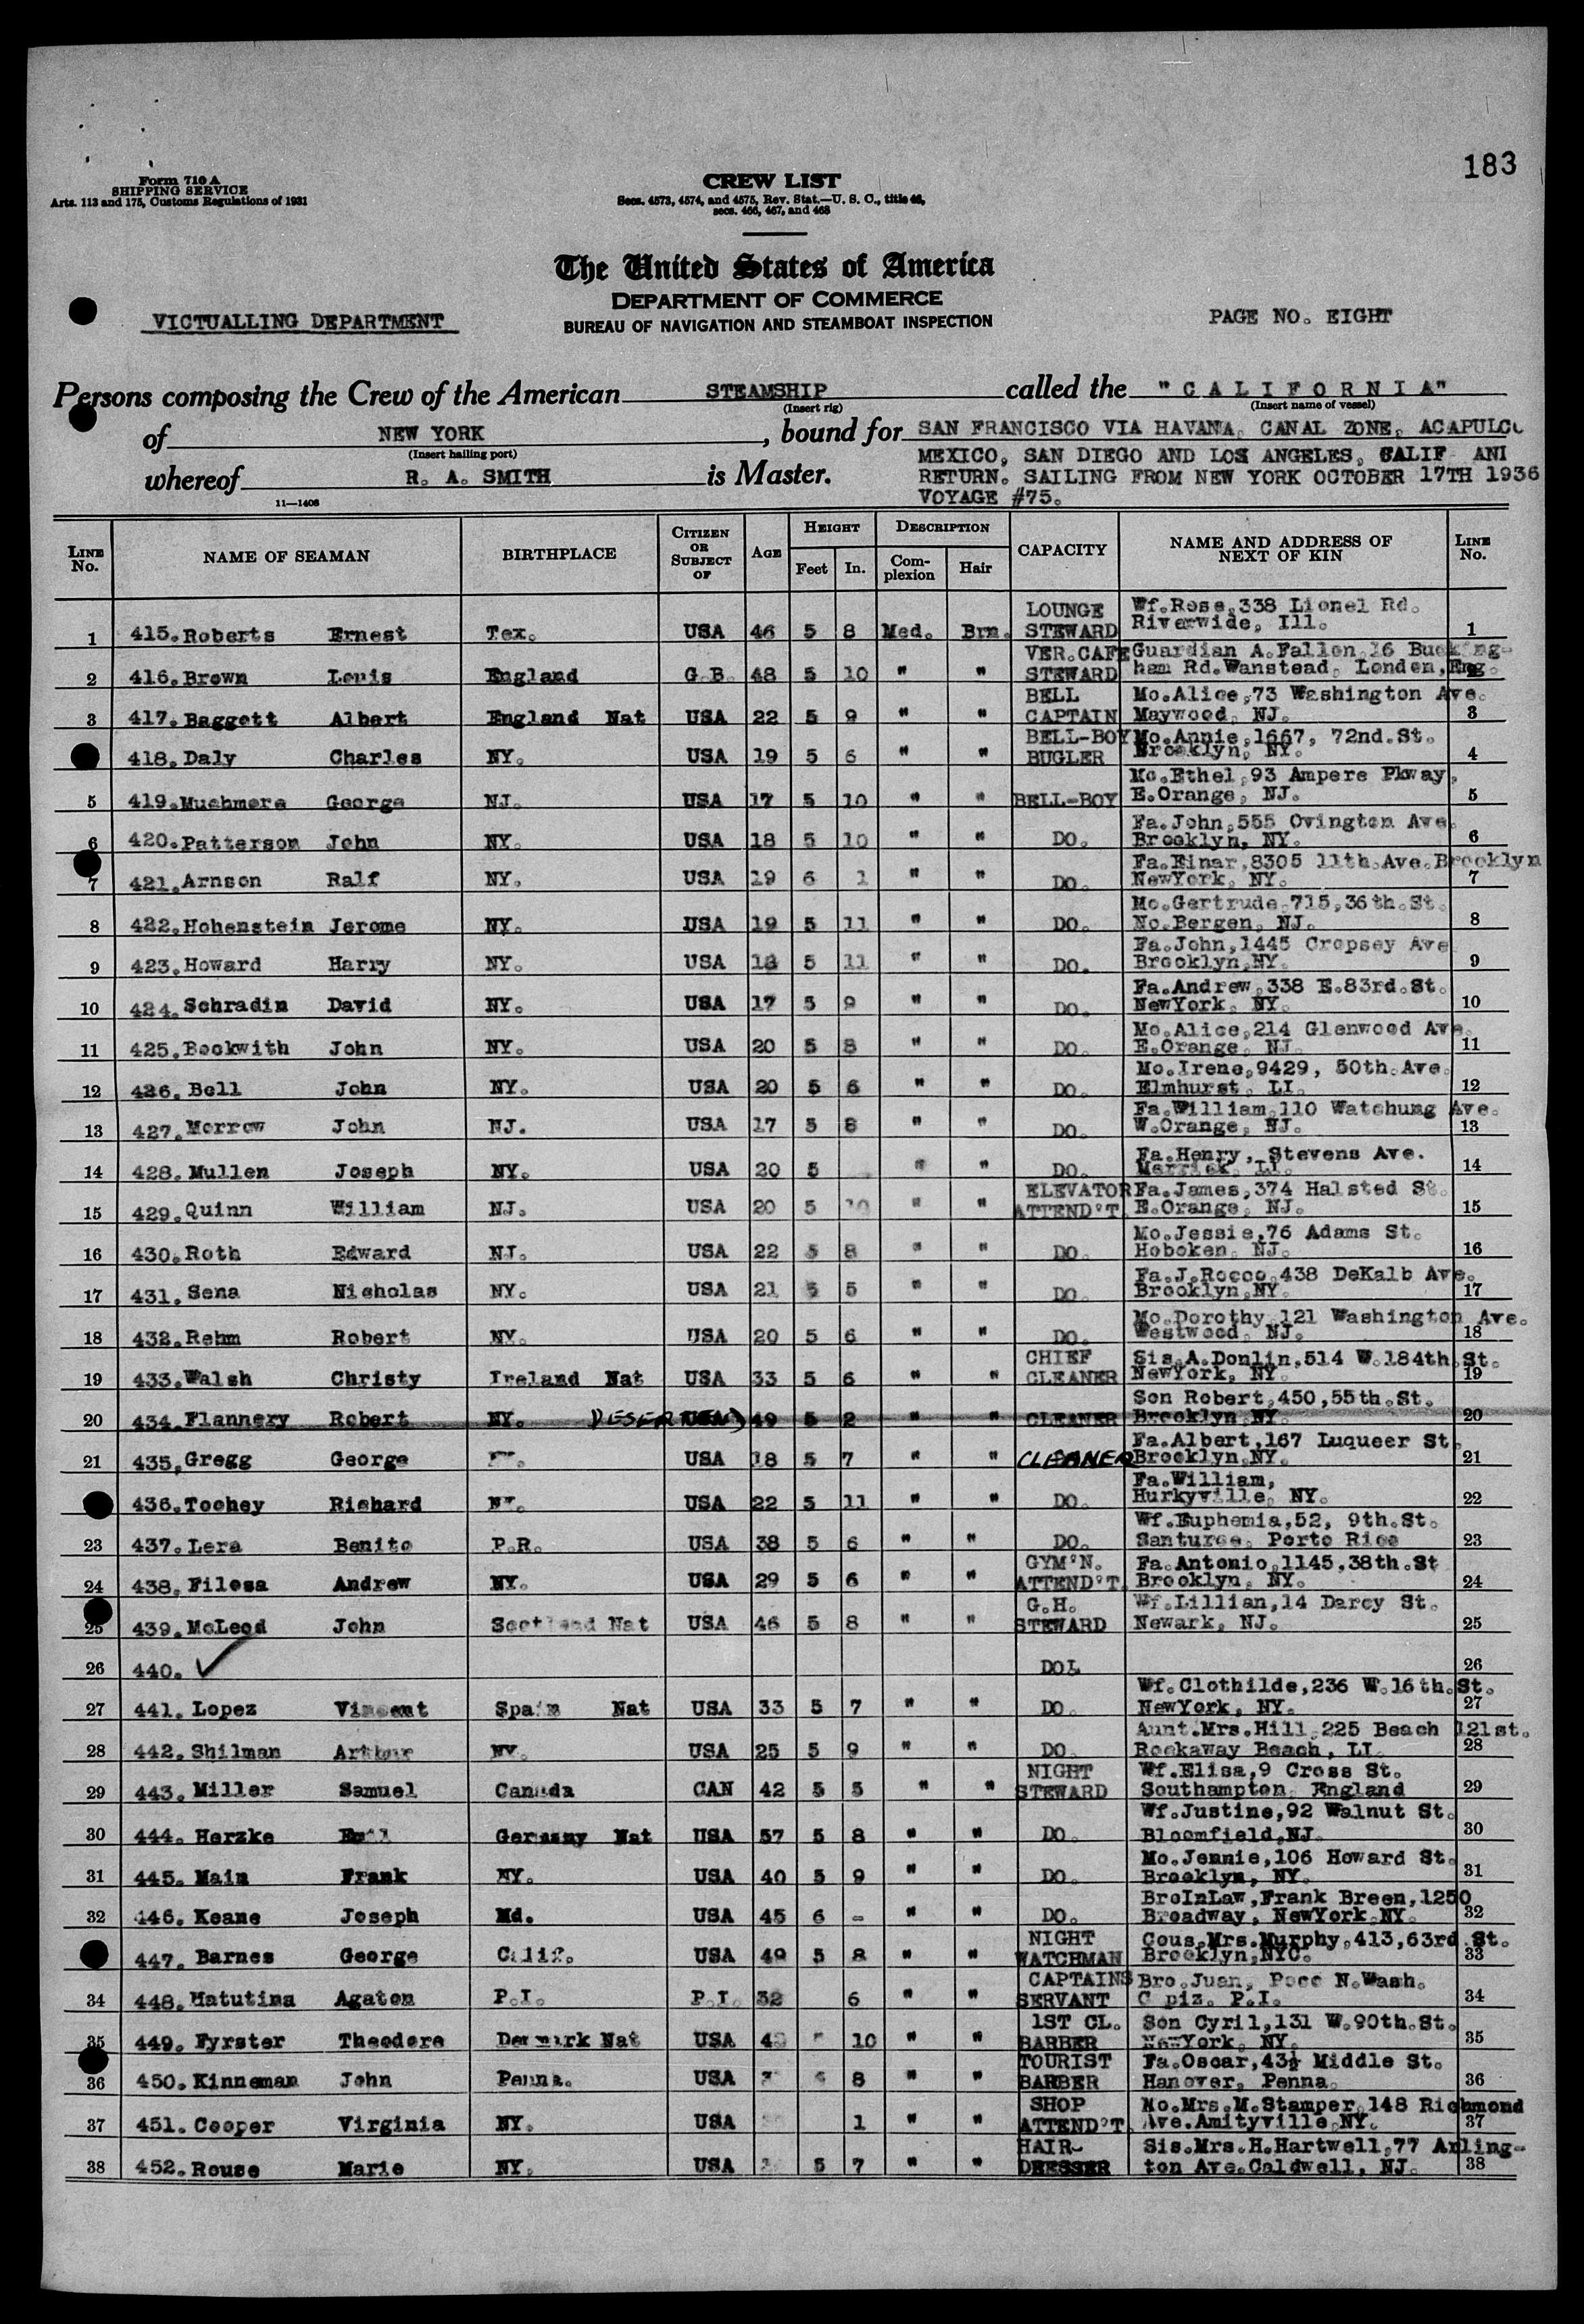 183
Form 710 A
SHIPPING SERVICE
Arts. 113 and 175, Customs Regulations of 1931
CREW LIST
Secs. 4573, 4574, and 4575, Rev. Stat.—U. S. C., title 46,
secs. 466, 467, and 468
The United States of America
DEPARTMENT OF COMMERCE
BUREAU OF NAVIGATION AND STEAMBOAT INSPECTION
VICTUALLING DEPARTMENT
PAGE NO. EIGHT
Persons composing the Crew of the American STEAMSHIP called the "CALIFORNIA"
(Insert rig) (Insert name of vessel)
of NEW YORK, bound for SAN FRANCISCO VIA HAVANA, CANAL ZONE, ACAPULCO
(Insert hailing port) MEXICO, SAN DIEGO AND LOS ANGELES, CALIF AND
whereof R. A. SMITH is Master. RETURN. SAILING FROM NEW YORK OCTOBER 17TH 1936
11—1408 VOYAGE #75.
LINE No. NAME OF SEAMAN BIRTHPLACE CITIZEN OR SUBJECT OF AGE HEIGHT Feet In. DESCRIPTION Complexion Hair CAPACITY NAME AND ADDRESS OF NEXT OF KIN LINE No.
1 415. Roberts Ernest Tex. USA 46 5 8 Med. Brn. LOUNGE STEWARD Wf.Rose,338 Lionel Rd. Riverwide, Ill. 1
2 416. Brown Louis England G.B. 48 5 10 " " VER.CAFE STEWARD Guardian A.Fallon,16 Bucking-ham Rd.Wanstead, London,Eng.
3 417. Baggett Albert England Nat USA 22 5 9 " " BELL CAPTAIN Mo.Alice,73 Washington Ave. Maywood, NJ. 3
418. Daly Charles NY. USA 19 5 6 " " BELL-BOY BUGLER Mo.Annie,1667, 72nd.St. Brooklyn, NY. 4
5 419. Muchmore George NJ. USA 17 5 10 " " BELL-BOY Mo.Ethel,93 Ampere Pkway, E.Orange, NJ. 5
6 420. Patterson John NY. USA 18 5 10 " " DO. Fa.John,555 Ovington Ave. Brooklyn, NY. 6
7 421. Arnson Ralf NY. USA 19 6 1 " " DO. Fa.Einar,8305 11th.Ave.Brooklyn NewYork, NY. 7
8 422. Hohenstein Jerome NY. USA 19 5 11 " " DO. Mo.Gertrude,715,36th.St. No.Bergen, NJ. 8
9 423. Howard Harry NY. USA 18 5 11 " " DO. Fa.John,1445 Cropsey Ave Brooklyn,NY. 9
10 424. Schradin David NY. USA 17 5 9 " " DO. Fa.Andrew,338 E.83rd.St. NewYork, NY. 10
11 425. Beckwith John NY. USA 20 5 8 " " DO. Mo.Alice,214 Glenwood Ave. E.Orange, NJ. 11
12 426. Bell John NY. USA 20 5 6 " " DO. Mo.Irene,9429, 50th.Ave. Elmhurst, LI. 12
13 427. Morrow John NJ. USA 17 5 8 " " DO. Fa.William,110 Watchung Ave. W.Orange, NJ. 13
14 428. Mullen Joseph NY. USA 20 5 " " DO. Fa.Henry, Stevens Ave. Merrick, LI. 14
15 429. Quinn William NJ. USA 20 5 10 " " ELEVATOR ATTEND'T. Fa.James,374 Halsted St. E.Orange, NJ. 15
16 430. Roth Edward NJ. USA 22 5 8 " " DO. Mo.Jessie,76 Adams St. Hoboken, NJ. 16
17 431. Sena Nicholas NY. USA 21 5 5 " " DO. Fa.J.Rocco,438 DeKalb Ave. Brooklyn,NY. 17
18 432. Rehm Robert NY. USA 20 5 6 " " DO. Mo.Dorothy,121 Washington Ave. Westwood, NJ. 18
19 433. Walsh Christy Ireland Nat USA 33 5 6 " " CHIEF CLEANER Sis.A.Donlin,514 W.184th.St. NewYork, NY. 19
20 434. Flannery Robert NY. DESERTED 49 5 2 " " CLEANER Son Robert,450,55th.St. Brooklyn,NY. 20
21 435. Gregg George USA 18 5 7 " " CLEANER Fa.Albert,167 Luqueer St. Brooklyn,NY. 21
436. Toohey Richard USA 22 5 11 " " DO. Fa.William, Hurkyville, NY. 22
23 437. Lera Benito P.R. USA 38 5 6 " " DO. Wf.Euphemia,52, 9th.St. Santurce, Porto Rico 23
24 438. Filosa Andrew NY. USA 29 5 6 " " GYM'N. ATTEND'T. Fa.Antonio,1145,38th.St Brooklyn, NY. 24
25 439. McLeod John Scotland Nat USA 46 5 8 " " G.H. STEWARD Wf.Lillian,14 Darcy St. Newark, NJ. 25
26 440. ✓ DO. 26
27 441. Lopez Vincent Spain Nat USA 33 5 7 " " DO. Wf.Clothilde,236 W.16th.St. NewYork, NY. 27
28 442. Shilman Arthur NY. USA 25 5 9 " " DO. Aunt.Mrs.Hill,225 Beach 121st. Rockaway Beach, LI. 28
29 443. Miller Samuel Canada CAN 42 5 5 " " NIGHT STEWARD Wf.Elisa,9 Cross St. Southampton, England 29
30 444. Herzke Emil Germany Nat USA 57 5 8 " " DO. Wf.Justine,92 Walnut St. Bloomfield,NJ. 30
31 445. Main Frank NY. USA 40 5 9 " " DO. Mo.Jennie,106 Howard St. Brooklyn, NY. 31
32 446. Keane Joseph Md. USA 45 6 - " " DO. BroInLaw,Frank Breen,1250 Broadway, NewYork,NY. 32
447. Barnes George Calif. USA 49 5 8 " " NIGHT WATCHMAN Cous.Mrs.Murphy,413,63rd.St. Brooklyn,NYC. 33
34 448. Matutina Agaton P.I. P.I. 32 6 " " CAPTAINS SERVANT Bro.Juan, Poco N.Wash. C piz. P.I. 34
35 449. Fyrster Theodore Denmark Nat USA 10 " " 1ST CL. BARBER Son Cyril,131 W.90th.St. NewYork, NY. 35
36 450. Kinneman John Penna. USA 8 " " TOURIST BARBER Fa.Oscar,43½ Middle St. Hanover, Penna. 36
37 451. Cooper Virginia NY. USA 1 " " SHOP ATTEND'T. Mo.Mrs.M.Stamper,148 Richmond Ave.Amityville,NY. 37
38 452. Rouse Marie NY. USA 5 7 " " HAIR-DRESSER Sis.Mrs.H.Hartwell,77 Arling-ton Ave.Caldwell, NJ. 38